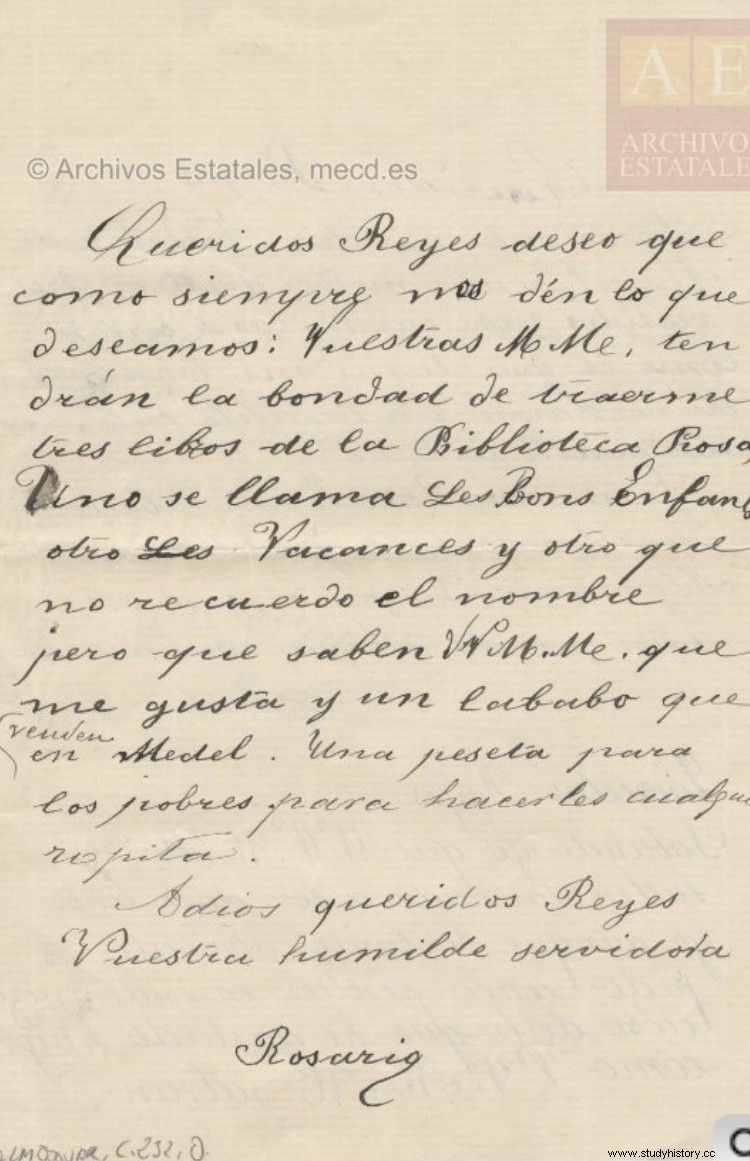 AE
ARCHIVO
ESTATALE
© Archivos Estatales, mecd.es
Queridos Reyes deseo que
como siempre nos dén lo que
deseamos: Vuestras M Me, ten
drán la bondad de traerme
tres libros de la Biblioteca Rosa
Uno se llama Les Bons Enfans
otro Les Vacances y otro que
no recuerdo el nombre
pero que saben VV M.Me. que
me gusta y un lababo que
venden
en Medel. Una peseta para
los pobres para hacerles cualqui
ropita.
Adios queridos Reyes
Vuestra humilde servidora
Rosario
ALMODOVAR, C.232, D.
www.studyhistory.cc